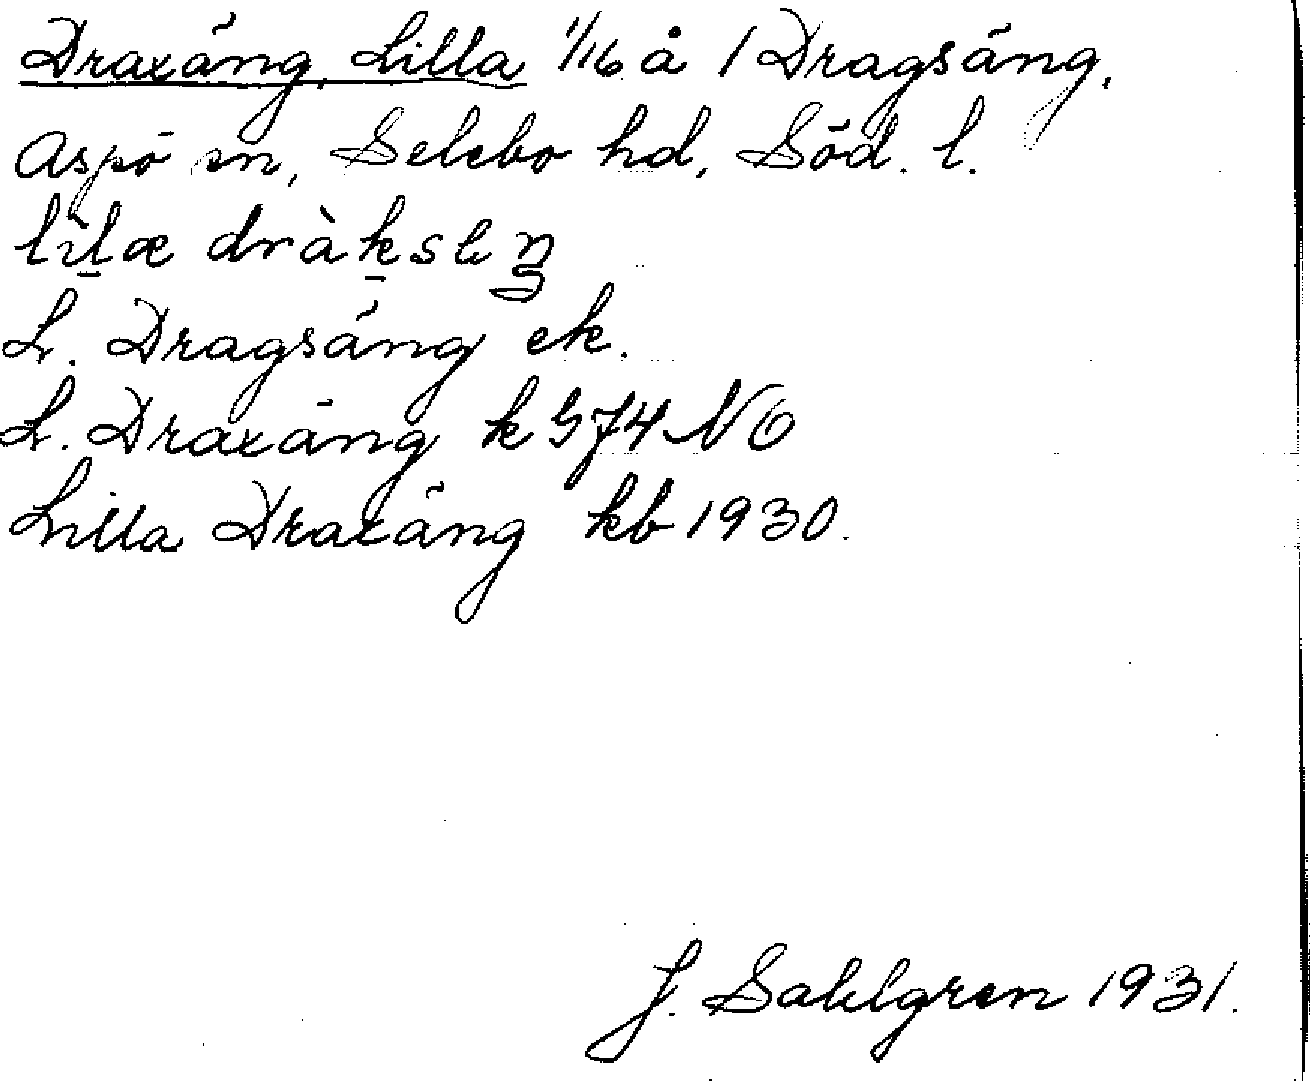 Draxäng, Lilla 1/16 å 1 Dragsäng,
Aspö sn, Selebo hd, Söd. l.
L. Dragsäng ek.
L. Draxäng k 574 NO
Lilla Draxäng kb 1930.
J. Sahlgren 1931.